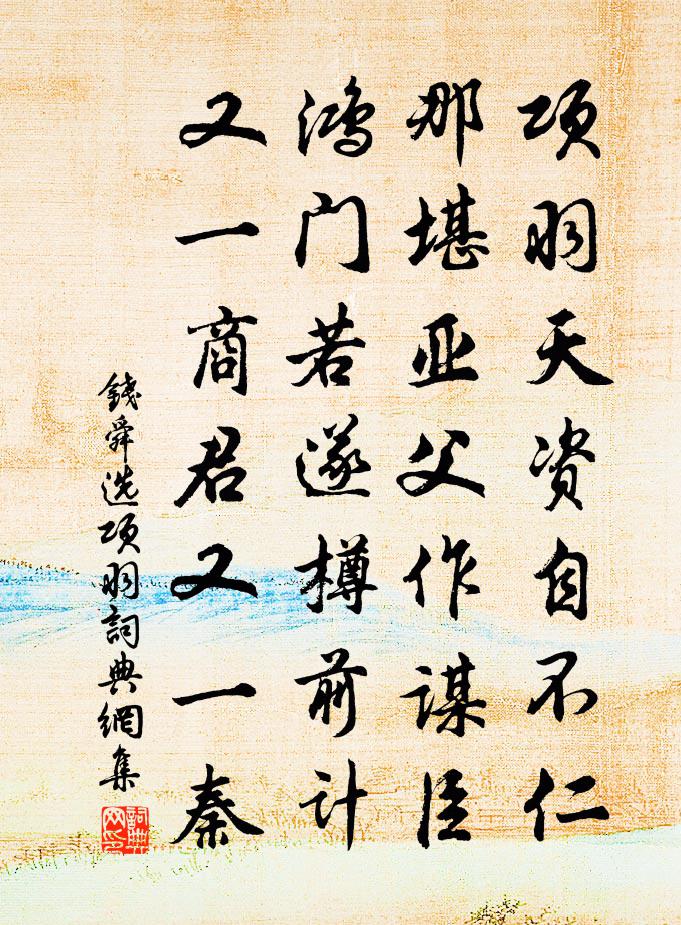 项羽天资自不仁
那堪亚父作谋臣
鸿门若遂樽前计
又一商君又一秦
錢舜选项羽詞典網集
詞典网印